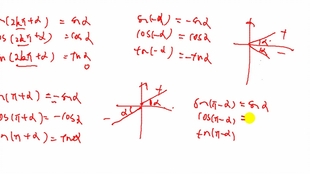 (2kπ+α) = sinα
os(2kπ+α) = cosα
an(2kπ+α) = tanα
sin(-α) = -sinα
cos(-α) = cosα
tan(-α) = -tanα
α
-α
+
-
in(π+α) = -sinα
os(π+α) = -cosα
an(π+α) = tanα
α
α
+
-
sin(π-α) = sinα
cos(π-α) =
tan(π-α)